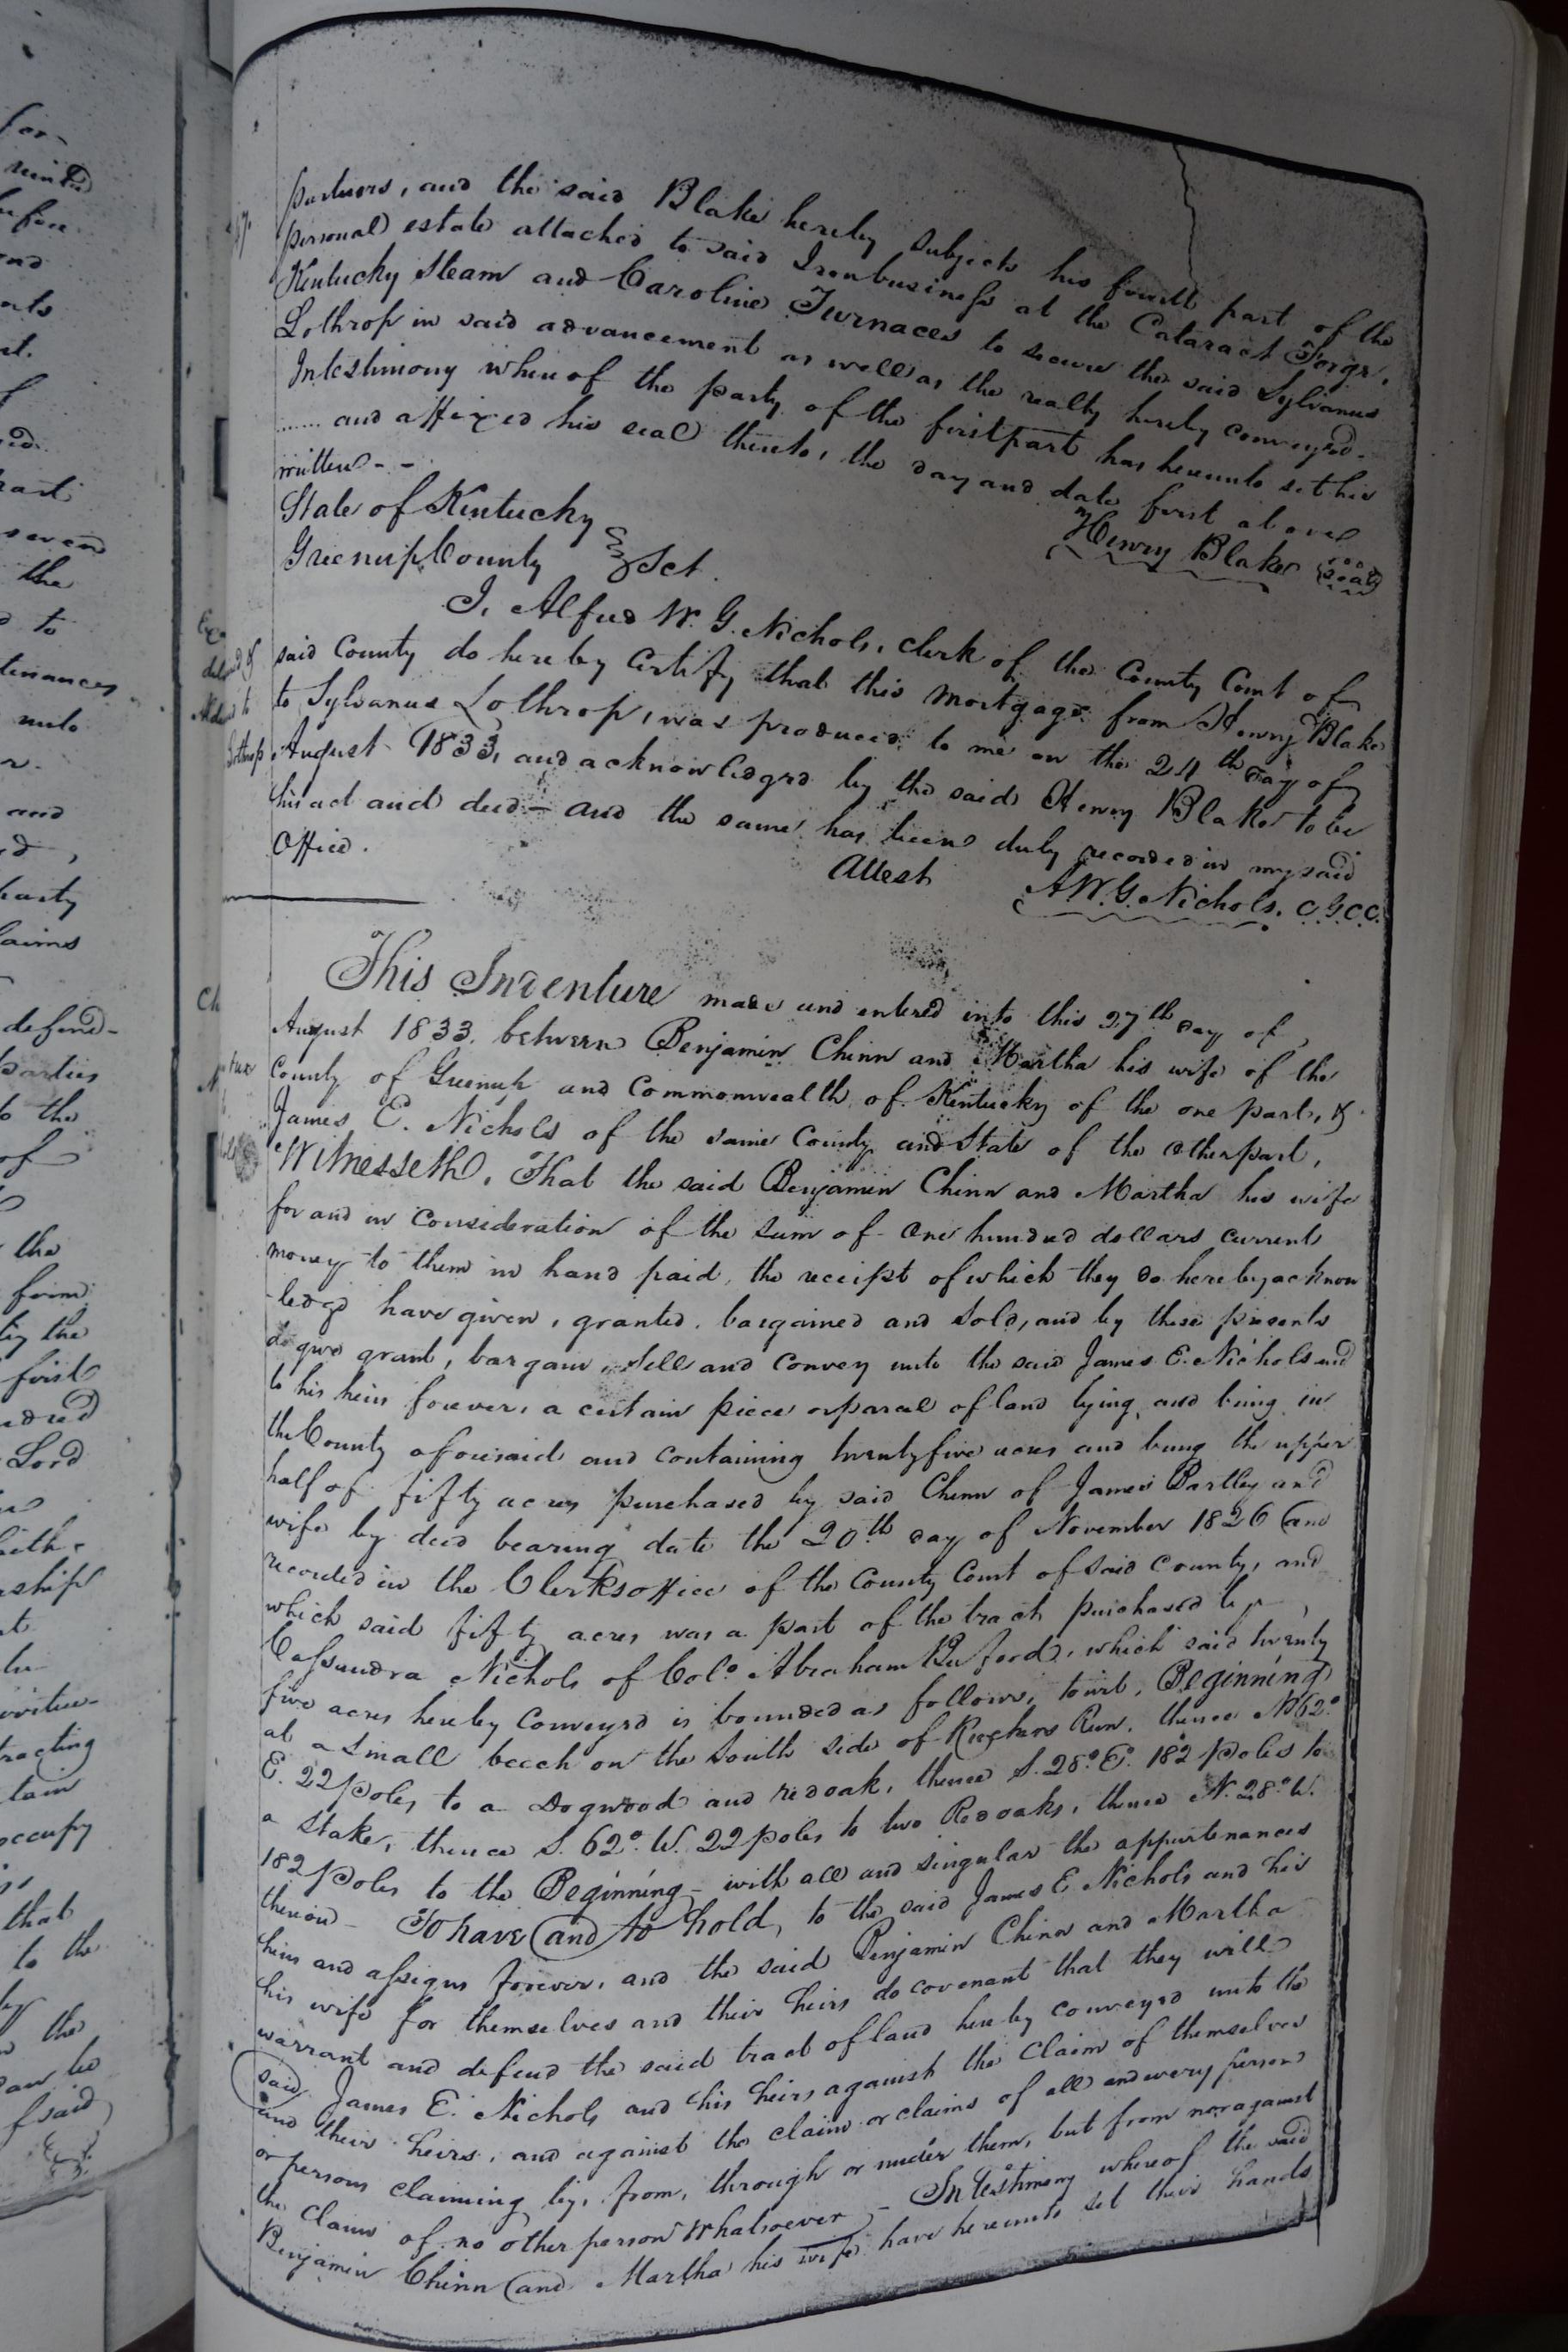 partners, and the said Blake hereby subjects his fourth part of the
personal estate attached to said Ironbusiness at the Cataract Forge,
Kentucky Steam and Caroline Furnaces to secure the said Sylvanus
Lothrop in said advancement as well as the realty hereby conveyed.
Intestimony whereof the party of the firstpart has hereunto set his
....... and affixed his seal thereto, the day and date first above
written - -
Henry Blake seal
State of Kentucky
Greenup County Sct.
I, Alfred W. G. Nichols, Clerk of the County Court of
said County do hereby Certify that this mortgage from Henry Blake
to Sylvanus Lothrop, was produced to me on the 24th day of
August 1833, and acknowledged by the said Henry Blake to be
his act and deed - and the same has been duly recorded in my said
Office.
Attest A. W. G. Nichols. C.G.C.C.
This Indenture made and entered into this 27th day of
August 1833. between Benjamin Chinn and Martha his wife of the
County of Greenup and Commonwealth of Kentucky of the one part, &
James E. Nichols of the same County and State of the other part,
Witnesseth, That the said Benjamin Chinn and Martha his wife
for and in consideration of the sum of One hundred dollars current
money to them in hand paid, the receipt of which they do hereby acknow
-ledge have given, granted, bargained and sold, and by these presents
do give grant, bargain, sell and convey unto the said James E. Nichols and
to his heirs forever, a certain piece or parcel of land lying and being in
the County aforesaid and containing twenty five acres and being the upper
half of fifty acres purchased by said Chinn of James Bartley and
wife by deed bearing date the 20th day of November 1826 and
recorded in the Clerks office of the County Court of said County, and
which said fifty acres was a part of the tract purchased by
Cassandra Nichols of Colo. Abraham Buford, which said twenty
five acres hereby conveyed is bounded as follows, towit, Beginning
at a small beech on the South side of Run, thence N 62°
E. 22 poles to a Dogwood and redoak, thence S. 28° E. 182 poles to
a stake, thence S. 62° W. 22 poles to two Redoaks, thence N. 28° W.
182 poles to the Beginning - with all and singular the appurtenances
thereon - To have and to hold, to the said James E Nichols and his
heirs and assigns forever, and the said Benjamin Chinn and Martha
his wife for themselves and their heirs do covenant that they will
warrant and defend the said tract of land hereby conveyed unto the
said James E. Nichols and his heirs against the Claim of themselves
and their heirs, and against the claim or claims of all and every person
or persons claiming by, from, through or under them, but from nor against
the Claim of no other person Whatsoever - In Testimony whereof the said
Benjamin Chinn and Martha his wife have hereunto set their hands